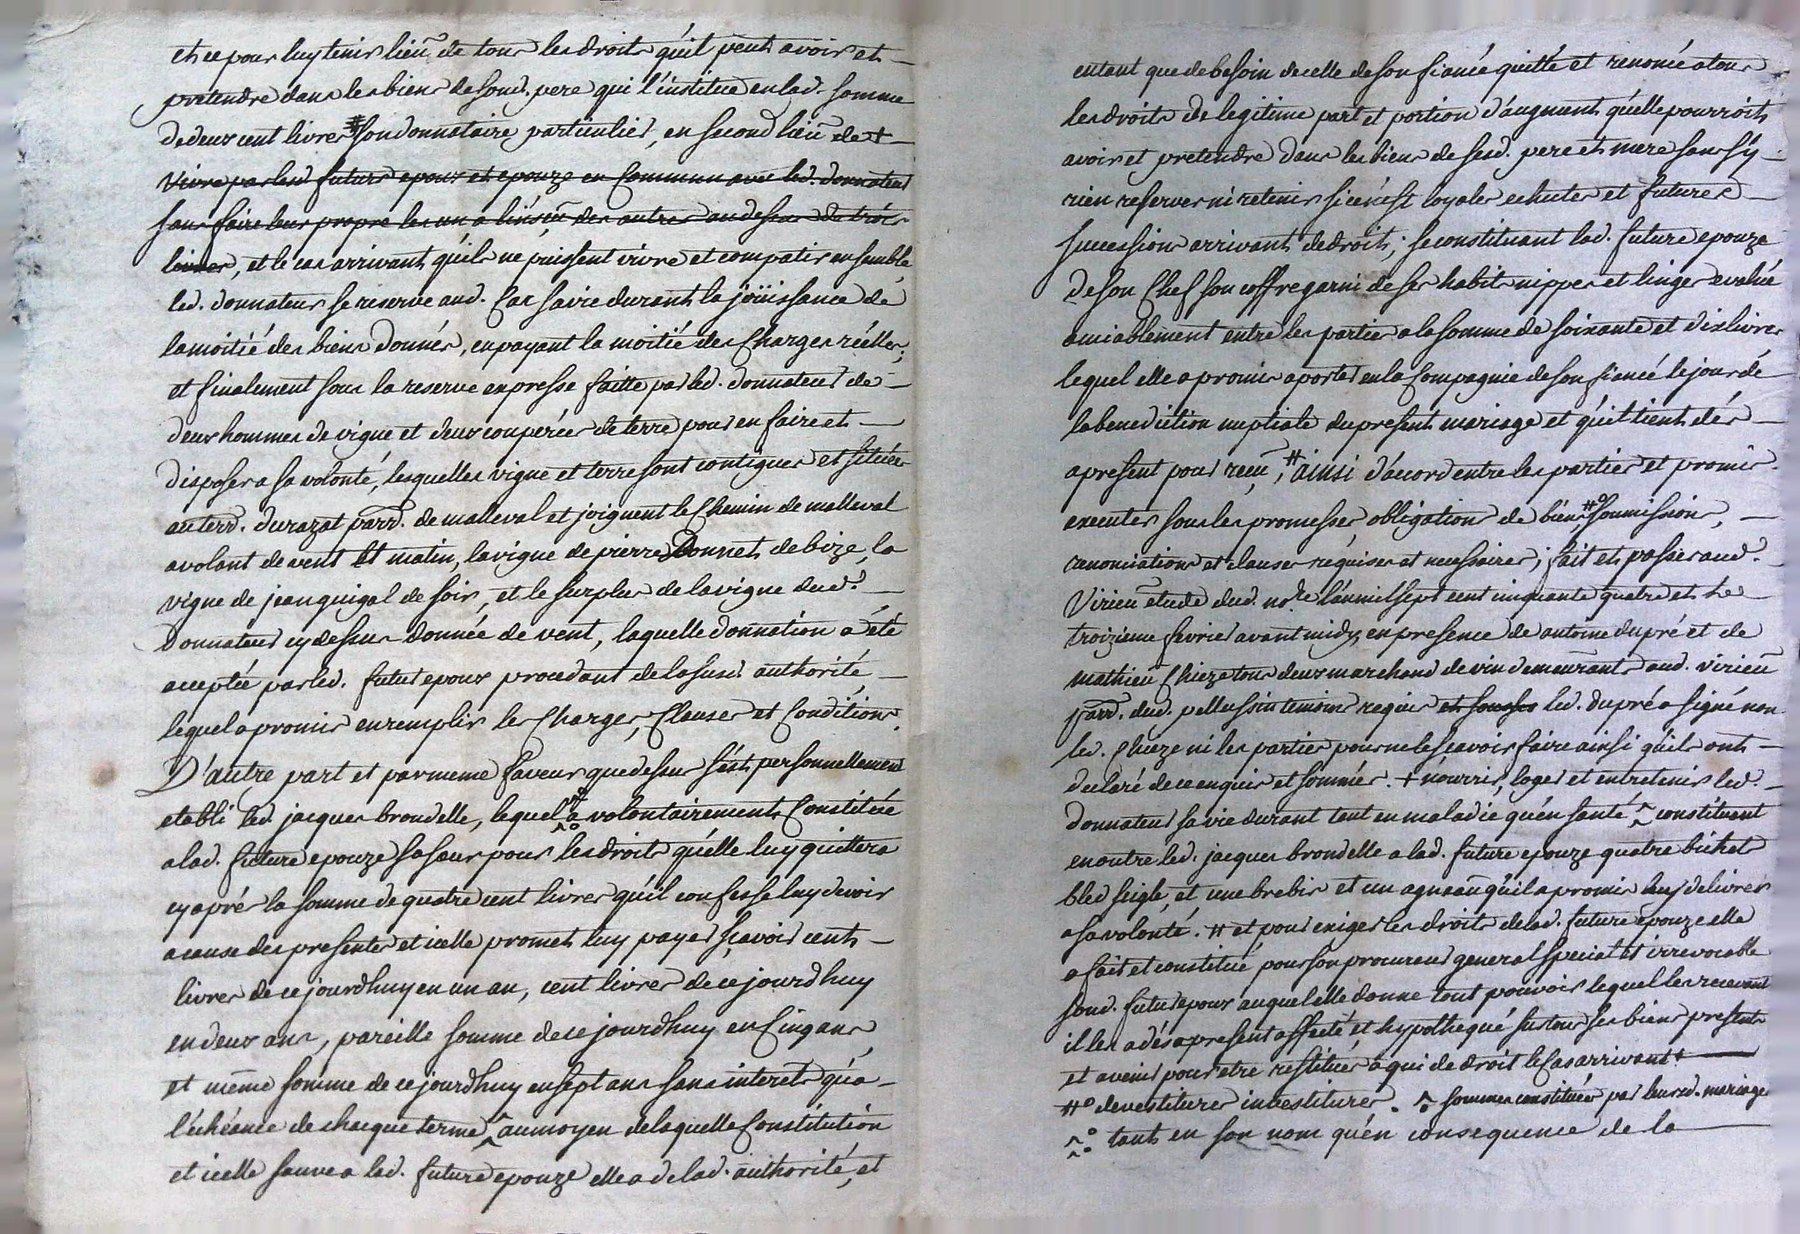 et ce pour luy tenir lieu de tous les droits qu'il peut avoir et
pretendre dans les biens de sond. pere qui l'institue en lad. somme
de deux cent livres # son donnataire particulier, en second lieu de +
vivre par lesd. futurs epoux et epouze en commun avec led. donnateur
sans faire leur propre les un a l'insçu des autres au dessus de trois
livres, et le cas arrivant qu'ils ne puissent vivre et compatir ensemble
led. donnateur se reserve aud. cas sa vie durant la joüissance de
la moitié des biens donnés, en payant la moitié des charges réelles;
et finalement sous la reserve expresse faitte par led. donnateur de
deux hommes de vigne et deux couperées de terre pour en faire et
disposer a sa volonté, lesquelles vigne et terre sont contigues et situées
au terr. durazat parr. de malleval et joignent le chemin de malleval
a volant de vent et matin, la vigne de pierre Bonnet de bize, la
vigne de jean guigal de soir, et le surplus de la vigne dud.
donnateur cy dessus donnée de vent, laquelle donnation a été
aceptée par led. futur epoux procedant de la susd. authorité
lequel a promis en remplir les charges, clauses et conditions.
D'autre part et par meme faveur que dessus s'est personnellement
etabli led. jacques brondelle, lequel a volontairement constitué
a lad. future epouze sa sœur pour les droits qu'elle luy quittera
cy aprés la somme de quatre cent livres qu'il confesse luy devoir
a cause des presentes et icelle promet luy payer sçavoir cent
livres de ce jourdhuy en un an, cent livres de ce jourdhuy
en deux ans, pareille somme de ce jourdhuy en cinq ans,
et même somme de ce jourdhuy en sept ans sans interets qu'a
l'échéance de chaque terme ^ au moyen de laquelle constitution
et icelle sauve a lad. future epouze elle a de lad. authorité, et
entant que de besoin de celle de son fiancé quitté et renoncé a tous
les droits de legitime part et portion d'augment qu'elle pourroit
avoir et pretendre dans les biens de sesd. pere et mere sans s'y
rien reserver ni retenir si ce n'est loyales echutes et futures
succession arrivant de droit, se constituant lad. future epouze
de son chef son coffre garni de ses habits nippes et linges evalué
amiablement entre les parties a la somme de soixante et dix livres
lequel elle a promis aporter en la compagnie de son fiancé le jour de
la benediction nuptiale du present mariage et qu'il tient dés
a present pour reçu, # ainsi d'acord entre les parties et promis
executer sous les promesses obligations de biens #° soumissions,
renonciations et clauses requises et necessaires; fait et passé aud.
Virieu étude dud. nore. l'an mil sept cent cinquante quatre et le
troizieme fevrier avant midy, en presence de antoine dupré et de
mathieu Chieze tous deux marchand de vin demeurants aud. virieu
parr. dud. pellussin temoins requis et soussi led. dupré a signé non
led. Chieze ni les parties pour ne le sçavoir faire ainsi qu'ils ont
declaré de ce enquis et sommés. + nourrir, loger et entretenir led.
donnateur sa vie durant tant en maladie qu'en santé ^ constituant
en outre led. jacques brondelle a lad. future epouze quatre bichet
bled seigle, et une brebis et un agneau qu'il a promis luy delivrer
a sa volonté. # et pour exiger les droits de lad. future epouze elle
a fait et constitué pour son procureur general special et irrevocable
sond. futur epoux auquel elle donne tout pouvoir lequel les recevant
il les a dés a present affecté et hypothequé sur tous ses biens presents
et avenir pour etre restitués a qui de droit le cas arrivant
#° devestitures investitures. ^° sommes constituées par leursd. mariage
^° tant en son nom qu'en consequence de la